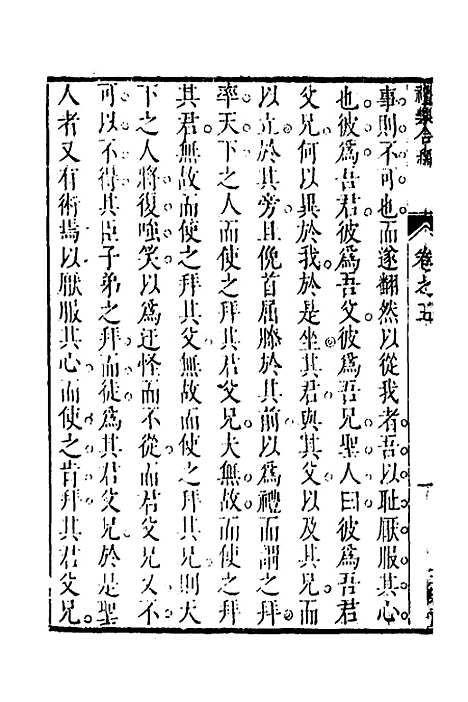 禮樂合編 卷之五
事則不可也而遂翻然以從我者吾以耻厭服其心
也彼爲吾君彼爲吾父彼爲吾兄聖人曰彼爲吾君
父兄何以異於我於是坐其君與其父以及其兄而
以立於其旁且俛首屈膝於其前以爲禮而謂之拜
率天下之人而使之拜其君父兄夫無故而使之拜
其君無故而使之拜其父無故而使之拜其兄則天
下之人將復嗤笑以爲迂怪而不從而君父兄又不
可以不得其臣子弟之拜而徒爲其君父兄於是聖
人者又有術焉以厭服其心而使之肯拜其君父兄